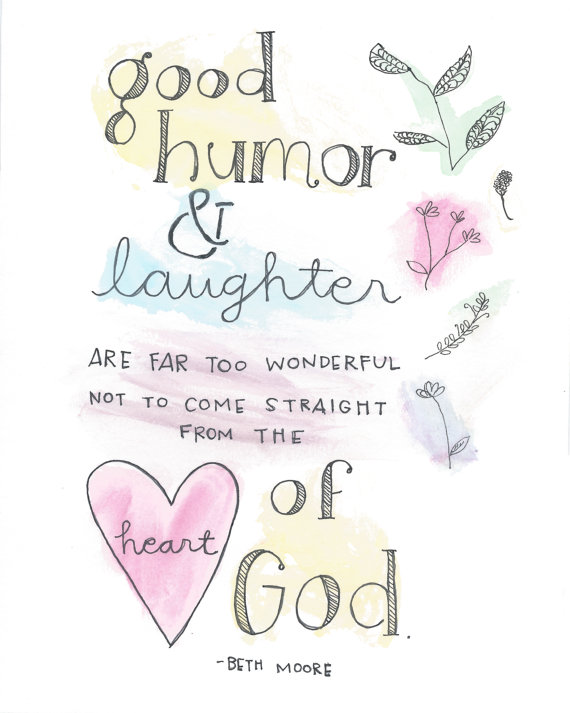 good
humor
&
laughter
ARE FAR TOO WONDERFUL
NOT TO COME STRAIGHT
FROM THE
heart of
God.
-BETH MOORE